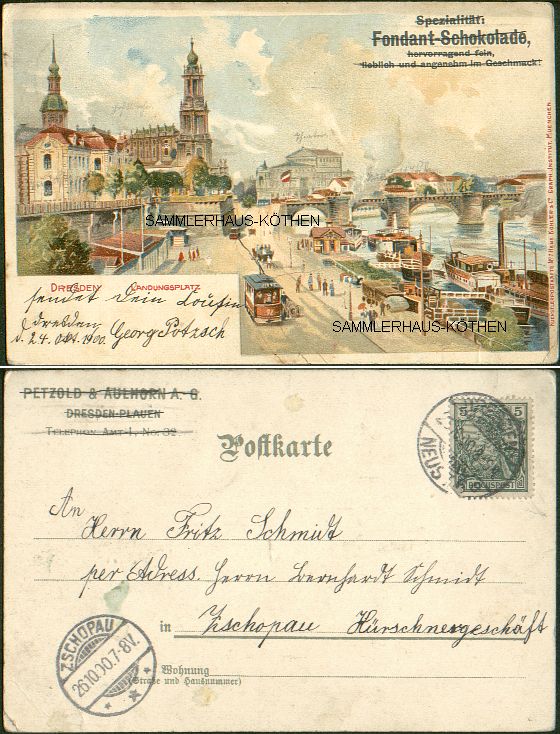 Spezialität:
Fondant-Schokolade,
hervorragend fein,
lieblich und angenehm im Geschmack!
SAMMLERHAUS-KÖTHEN
DRESDEN LANDUNGSPLATZ
SAMMLERHAUS-KÖTHEN
sendet dem Cousin
Dresden
d. 24. Okt. 1900. Georg Potzsch
PETZOLD & AULHORN A. G.
DRESDEN-PLAUEN
TELEPHON AMT I, NO. 32
Postkarte
5 5
REICHSPOST
NEUS
An
Herrn Fritz Schmidt
per Adress. Herrn Bernhardt Schmidt
in Zschopau Hürschnergeschäft
ZSCHOPAU
26.10.00.7-8V.
Wohnung
(Straße und Hausnummer)